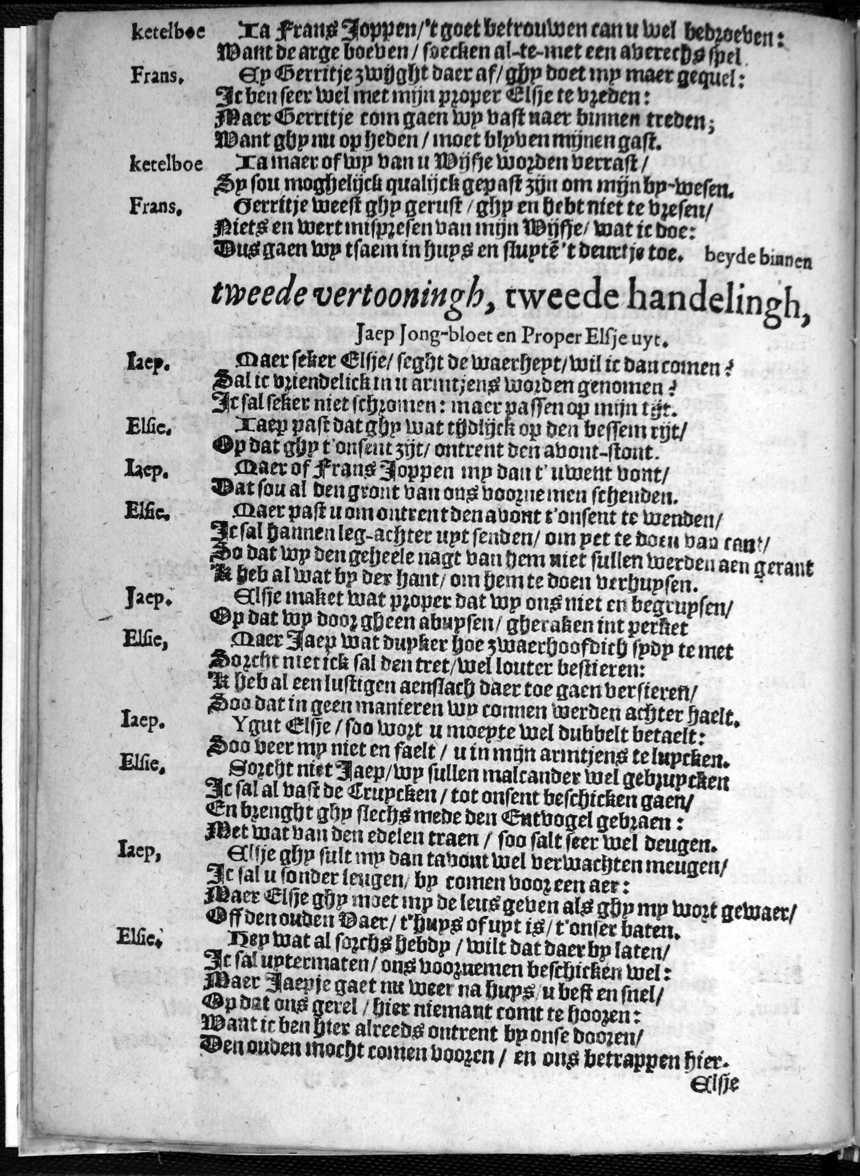 ketelboe Ia Frans Joppen/'t goet betrouwen can u wel bedroeven:
Want de arge boeven/ soecken al-te-met een averechs spel.
Frans. Ey Gerritje zwijght daer af/ ghy doet my maer gequel:
Ic ben seer wel met mijn proper Elsje te vreden:
Maer Gerritje com gaen wy vast naer binnen treden;
Want ghy nu op heden/ moet blyven mijnen gast.
ketelboe Ia maer of wy van u Wijfje worden verrast/
Sy sou moghelijck qualijck gepast zijn om mijn by-wesen.
Frans. Gerritje weest ghy gerust/ ghy en hebt niet te vresen/
Niets en wert mispresen van mijn Wijfje/ wat ic doe:
Dus gaen wy tsaem in huys en sluytē 't deurtje toe. beyde binnen
tweede vertooningh, tweede handelingh,
Jaep Jong-bloet en Proper Elsje uyt.
Iaep. Maer seker Elsje/ seght de waerheyt/ wil ic dan comen?
Sal ic vriendelick in u armtjens worden genomen?
Ic sal seker niet schromen: maer passen op mijn tijt.
Elsie. Iaep past dat ghy wat tijdlijck op den bessem rijt/
Op dat ghy t'onsent zijt/ ontrent den avont-stont.
Iaep. Maer of Frans Joppen my dan t'uwent vont/
Dat sou al den gront van ons voornemen schenden.
Elsie. Maer past u om ontrent den avont t'onsent te wenden/
Ic sal hannen leg-achter uyt senden/ om yet te doen van cant/
So dat wy den geheele nagt van hem niet sullen werden aen gerant
'k heb al wat by der hant/ om hem te doen verhuysen.
Jaep. Elsje maket wat proper dat wy ons niet en begruysen/
Op dat wy door gheen abuysen/ gheraken int perket
Elsie, Maer Jaep wat duyker hoe zwaerhoofdich sydy te met
Sorcht niet ick sal den tret/ wel louter bestieren:
'k heb al een lustigen aenslach daer toe gaen versieren/
Soo dat in geen manieren wy connen werden achter haelt.
Iaep. Y gut Elsje/ soo wort u moeyte wel dubbelt betaelt:
Soo veer my niet en faelt/ u in mijn armtjens te luycken.
Elsie, Sorcht niet Jaep/ wy sullen malcander wel gebruycken
Ic sal al vast de Cruycken/ tot onsent beschicken gaen/
En brenght ghy slechs mede den Entvogel gebraen:
Met wat van den edelen traen/ soo salt seer wel deugen.
Iaep, Elsje ghy sult my dan tavont wel verwachten meugen/
Ic sal u sonder leugen/ by comen voor een aer:
Maer Elsje ghy moet my de leus geven als ghy my wort gewaer/
Off den ouden Vaer/ t'huys of uyt is/ t'onser baten.
Elsie. Hey wat al sorchs hebdy/ wilt dat daer by laten/
Ic sal uytermaten/ ons voornemen beschicken wel:
Maer Jaepje gaet nu weer na huys/ u best en snel/
Op dat ons gerel/ hier niemant comt te hooren:
Want ic ben hier alreeds ontrent by onse dooren/
Den ouden mocht comen vooren/ en ons betrappen hier.
Elsje